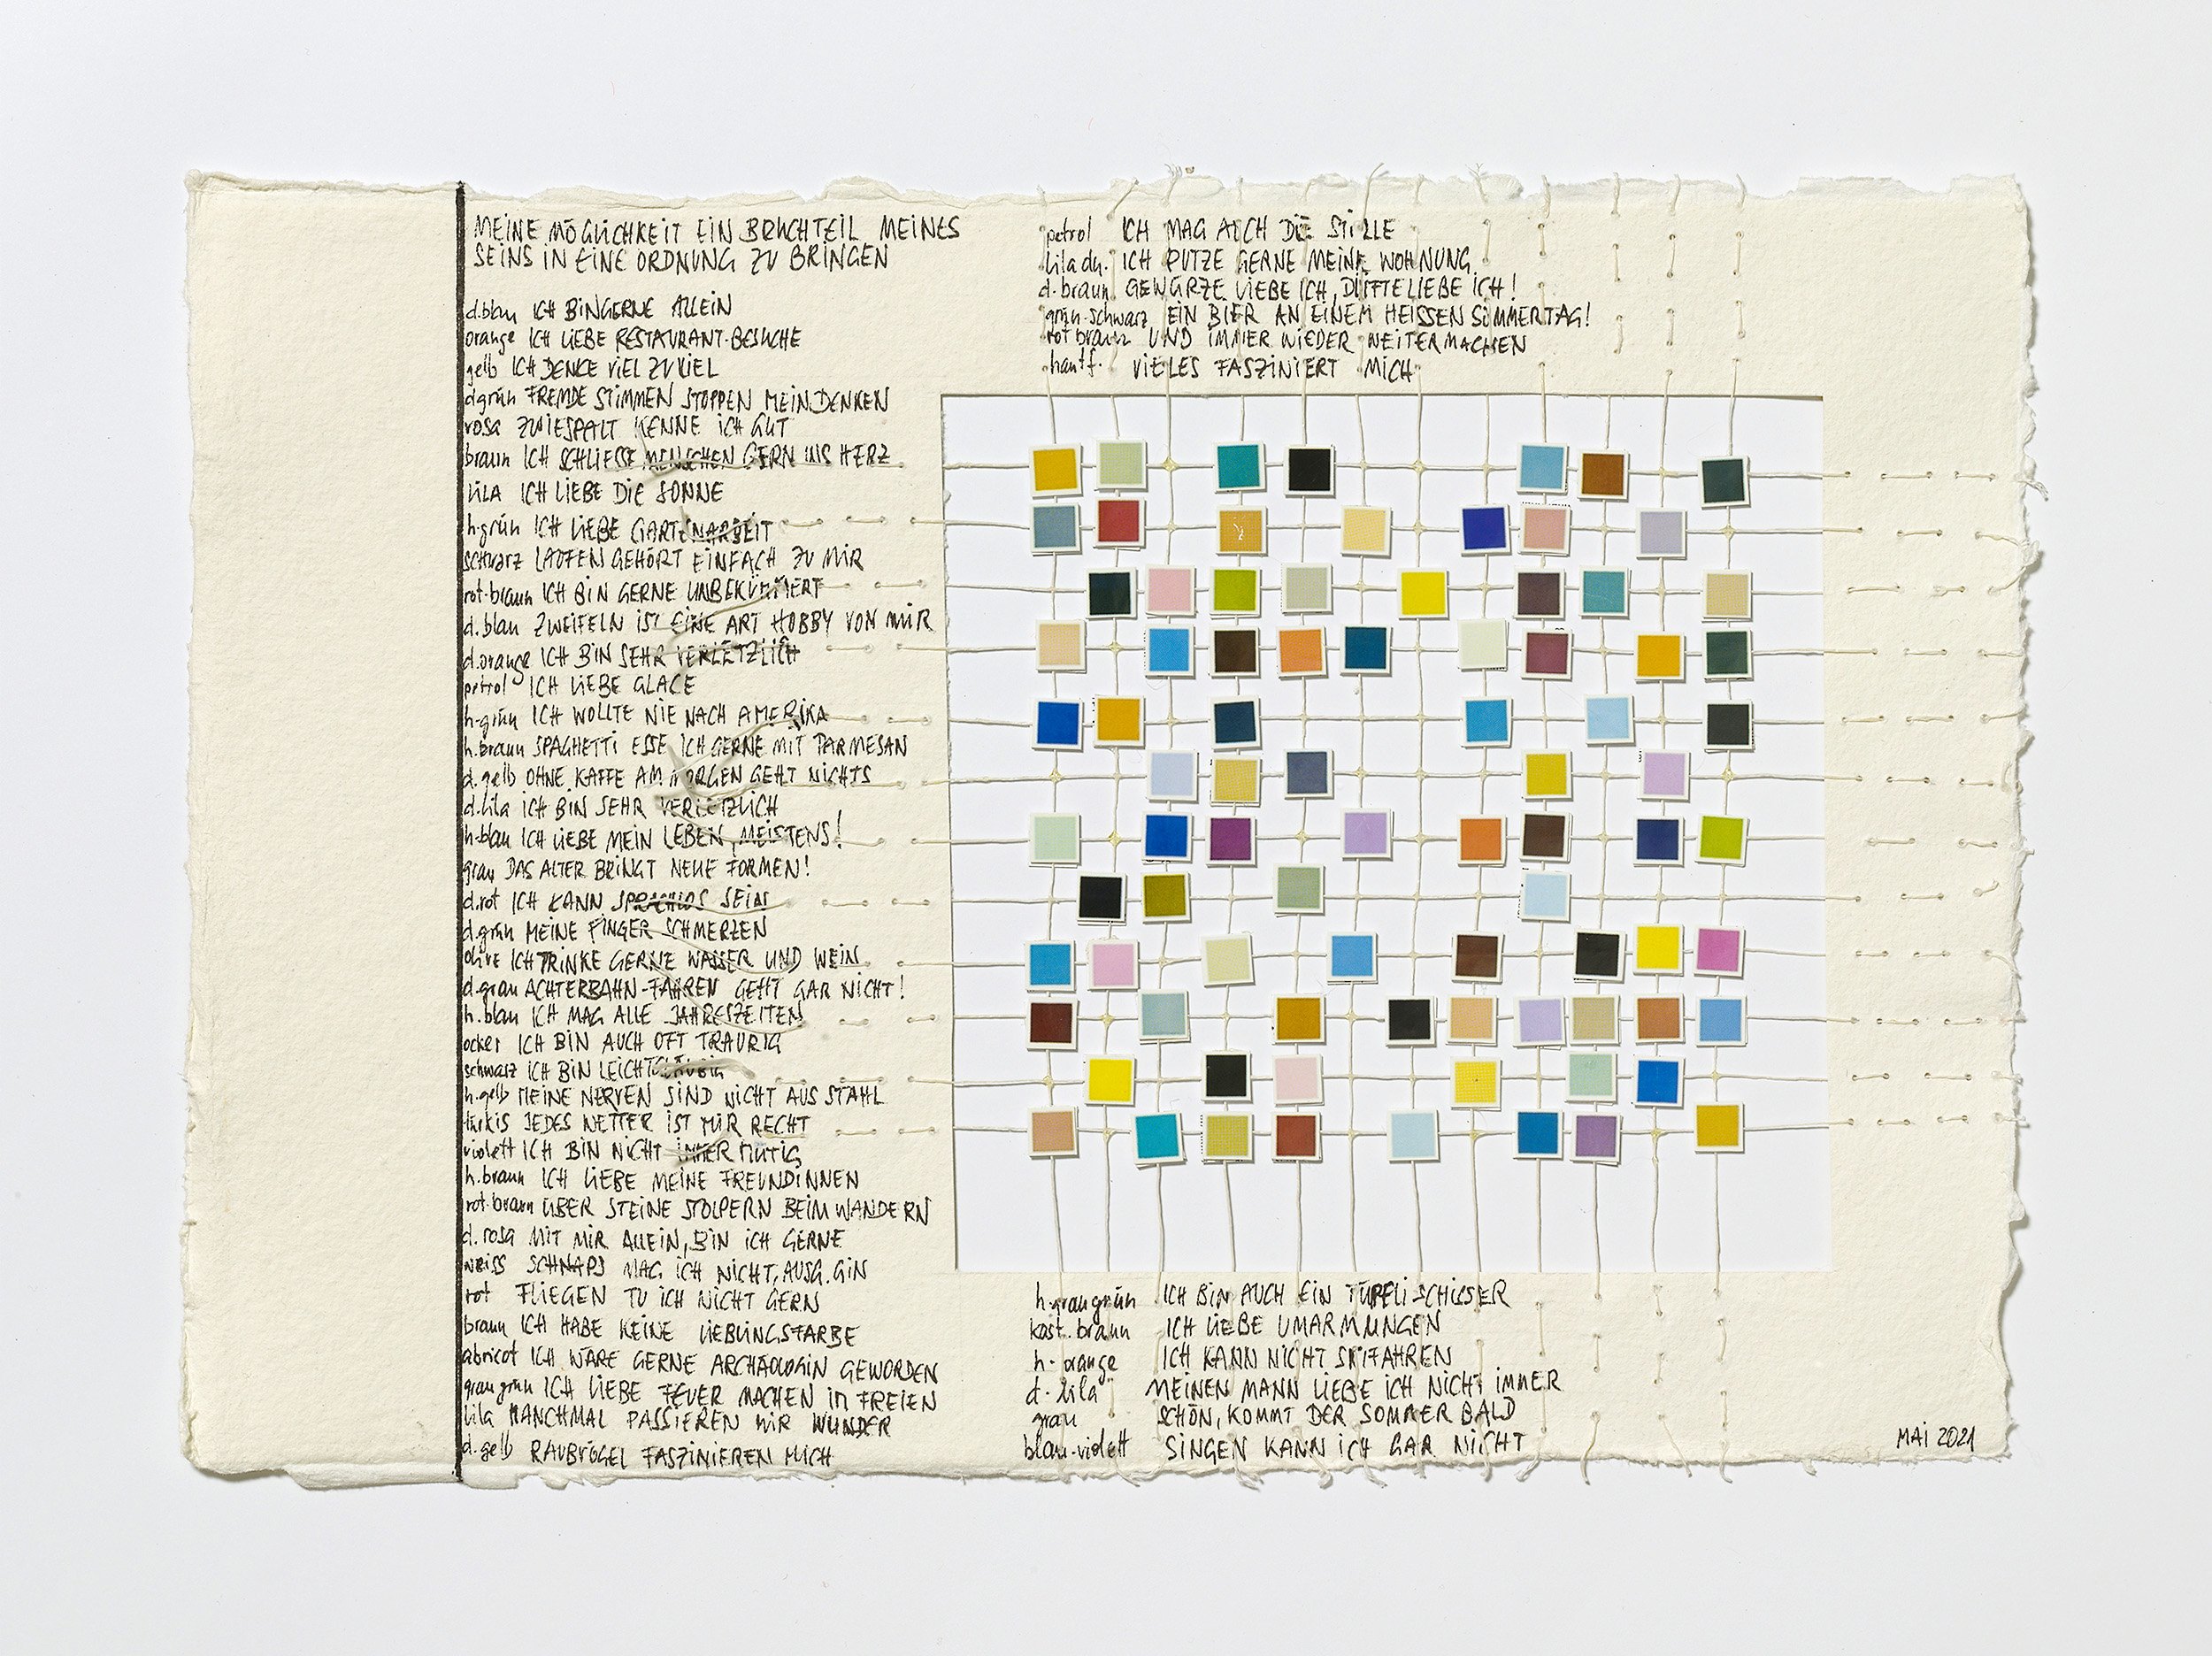 MEINE MÖGLICHKEIT EIN BRUCHTEIL MEINES
SEINS IN EINE ORDNUNG ZU BRINGEN
d.blau ICH BIN GERNE ALLEIN
orange ICH LIEBE RESTAURANT-BESUCHE
gelb ICH DENKE VIEL ZU VIEL
d.grün FREMDE STIMMEN STOPPEN MEIN DENKEN
rosa ZWIESPALT KENNE ICH GUT
braun ICH SCHLIESSE MENSCHEN GERN INS HERZ
lila ICH LIEBE DIE SONNE
h-grün ICH LIEBE GARTENARBEIT
schwarz LAUFEN GEHÖRT EINFACH ZU MIR
rot-braun ICH BIN GERNE UNBEKÜMMERT
d.blau ZWEIFELN IST EINE ART HOBBY VON MIR
d.orange ICH BIN SEHR VERLETZLICH
petrol ICH LIEBE GLACE
h-grün ICH WOLLTE NIE NACH AMERIKA
h.braun SPAGHETTI ESSE ICH GERNE MIT PARMESAN
d.gelb OHNE KAFFE AM MORGEN GEHT NICHTS
d.lila ICH BIN SEHR VERLETZLICH
h-blau ICH LIEBE MEIN LEBEN, MEISTENS!
grau DAS ALTER BRINGT NEUE FORMEN!
d.rot ICH KANN SPRACHLOS SEIN
d.grün MEINE FINGER SCHMERZEN
olive ICH TRINKE GERNE WASSER UND WEIN
d.grau ACHTERBAHN-FAHREN GEHT GAR NICHT!
h.blau ICH MAG ALLE JAHRESZEITEN
ocker ICH BIN AUCH OFT TRAURIG
schwarz ICH BIN LEICHTGLÄUBIG
h.gelb MEINE NERVEN SIND NICHT AUS STAHL
türkis JEDES WETTER IST MIR RECHT
violett ICH BIN NICHT IMMER MUTIG
h.braun ICH LIEBE MEINE FREUNDINNEN
rot-braun ÜBER STEINE STOLPERN BEIM WANDERN
d.rosa MIT MIR ALLEIN, BIN ICH GERNE
weiss SCHNAPS MAG ICH NICHT, AUSG. GIN
rot FLIEGEN TU ICH NICHT GERN
braun ICH HABE KEINE LIEBLINGSFARBE
abricot ICH WÄRE GERNE ARCHÄOLOGIN GEWORDEN
grau grün ICH LIEBE FEUER MACHEN IM FREIEN
lila MANCHMAL PASSIEREN MIR WUNDER
d.gelb RAUBVÖGEL FASZINIEREN MICH
petrol ICH MAG AUCH DIE STILLE
lila du. ICH PUTZE GERNE MEINE WOHNUNG
d.braun GEWÜRZE LIEBE ICH, DÜFTE LIEBE ICH!
grün-schwarz EIN BIER AN EINEM HEISSEN SOMMERTAG!
rot braun UND IMMER WIEDER WEITERMACHEN
hautf. VIELES FASZINIERT MICH
h.graugrün ICH BIN AUCH EIN TÜPFLISCHISSER
kast.braun ICH LIEBE UMARMUNGEN
h-orange ICH KANN NICHT SKIFAHREN
d.lila MEINEN MANN LIEBE ICH NICHT IMMER
grau SCHÖN, KOMMT DER SOMMER BALD
blau-violett SINGEN KANN ICH GAR NICHT
MAI 2021